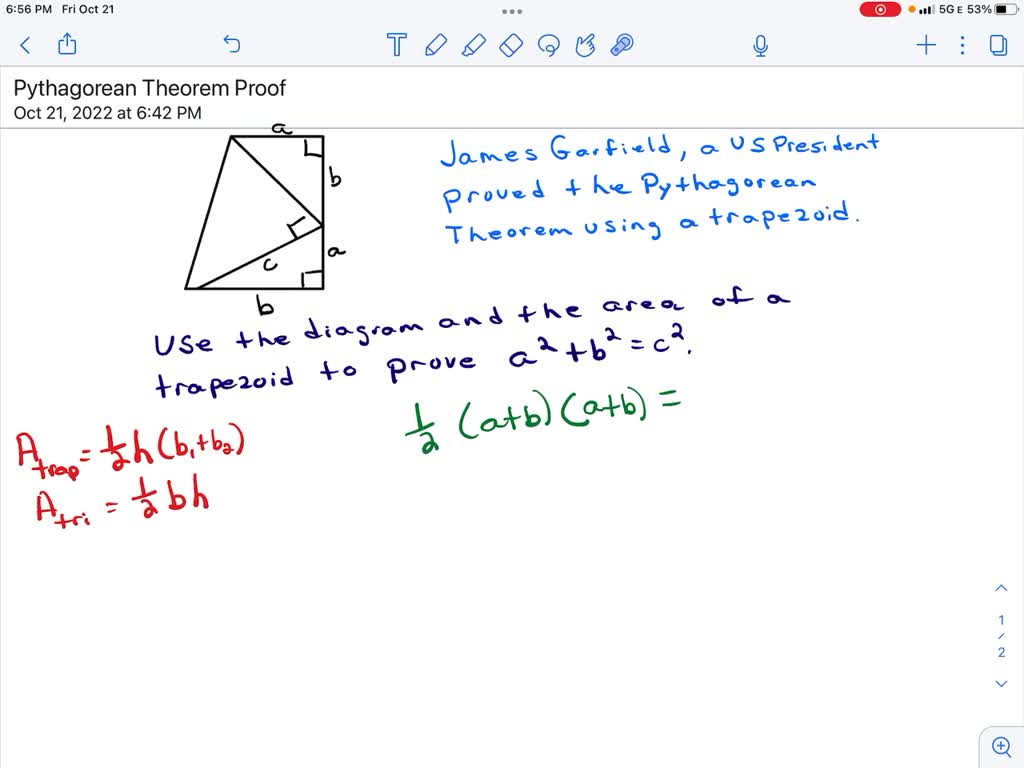 6:56 PM Fri Oct 21
5G E 53%
T
Pythagorean Theorem Proof
Oct 21, 2022 at 6:42 PM
a
b
a
c
b
James Garfield, a US President
proved the Pythagorean
Theorem using a trapezoid.
Use the diagram and the area of a
trapezoid to prove a²+b²=c².
½ (a+b)(a+b) =
A trap = ½h(b₁+b₂)
A tri = ½bh
1
/
2